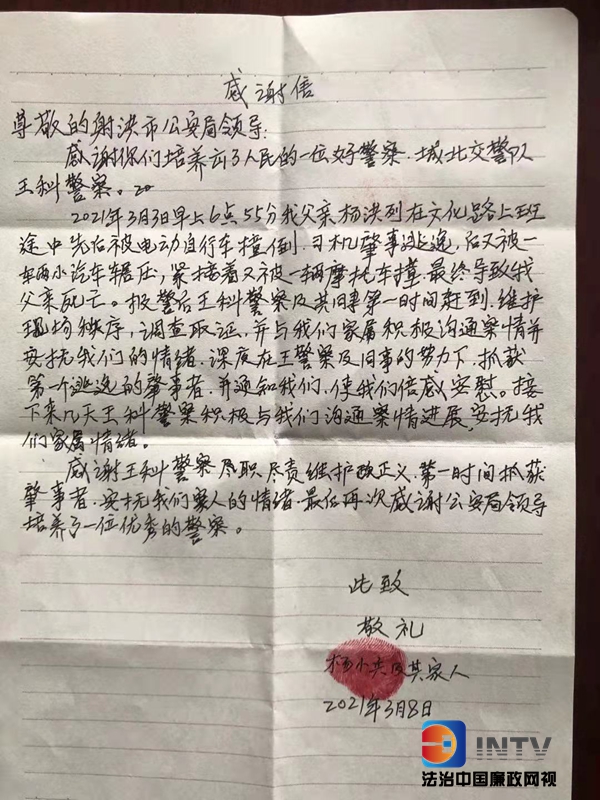 感谢信
尊敬的射洪市公安局领导:
感谢你们培养出了人民的一位好警察.城北交警队
王科警察。20
2021年3月3日早上6点55分我父亲杨洪列在文化路上班
途中先后被电动自行车撞倒.司机肇事逃逸,后又被一
辆小汽车辗压,紧接着又被一辆摩托车撞.最终导致我
父亲死亡。报警后王科警察及其同事第一时间赶到.维护
现场秩序,调查取证,并与我们家属积极沟通案情并
安抚我们的情绪.深度在王警察及同事的努力下.抓获
第一个逃逸的肇事者.并通知我们,使我们倍感安慰。接
下来几天王科警察积极与我们沟通案情进展,安抚我
们家属情绪。
感谢王科警察尽职尽责维护政正义.第一时间抓获
肇事者.安抚我们家人的情绪.最后再次感谢公安局领导
培养了一位优秀的警察。
此致
敬礼
杨小 及其家人
2021年3月8日
INTV
法治中国廉政网视